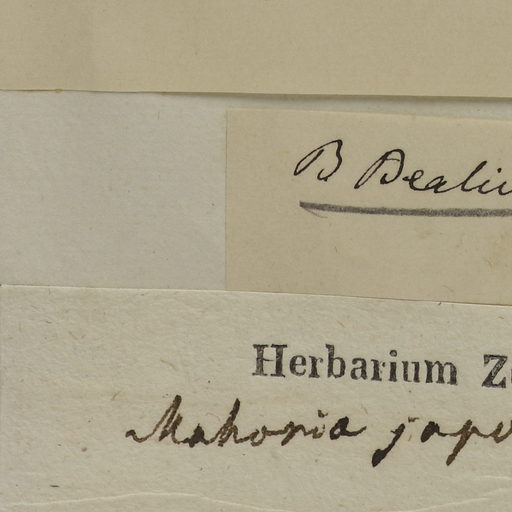 B Bealiu
Herbarium Z
Mahonia japo